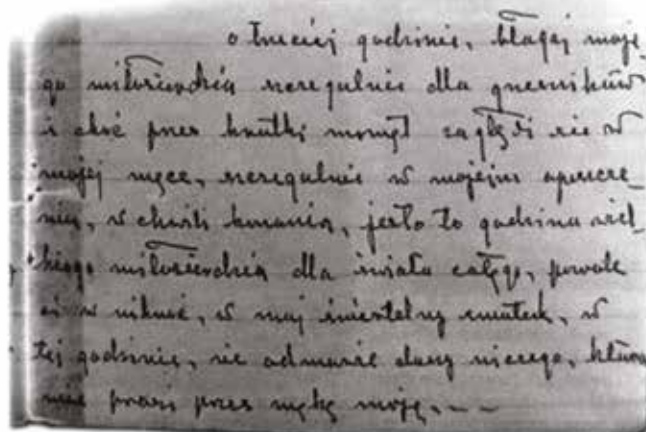 o trzeciej godzinie, błagaj moje
go miłosierdzia szczególnie dla grzeszników
i choć przez krótki moment zagłęb się w
mojej męce, szczególnie w mojem opuszcze_
niu, w chwili konania, jest to godzina wiel_
kiego miłosierdzia dla świata całego, pozwolę
ci w niknąć, w mój śmiertelny smutek, w
tej godzinie, nie odmówię duszy niczego, która
mnie prosi przez mękę moję. - -